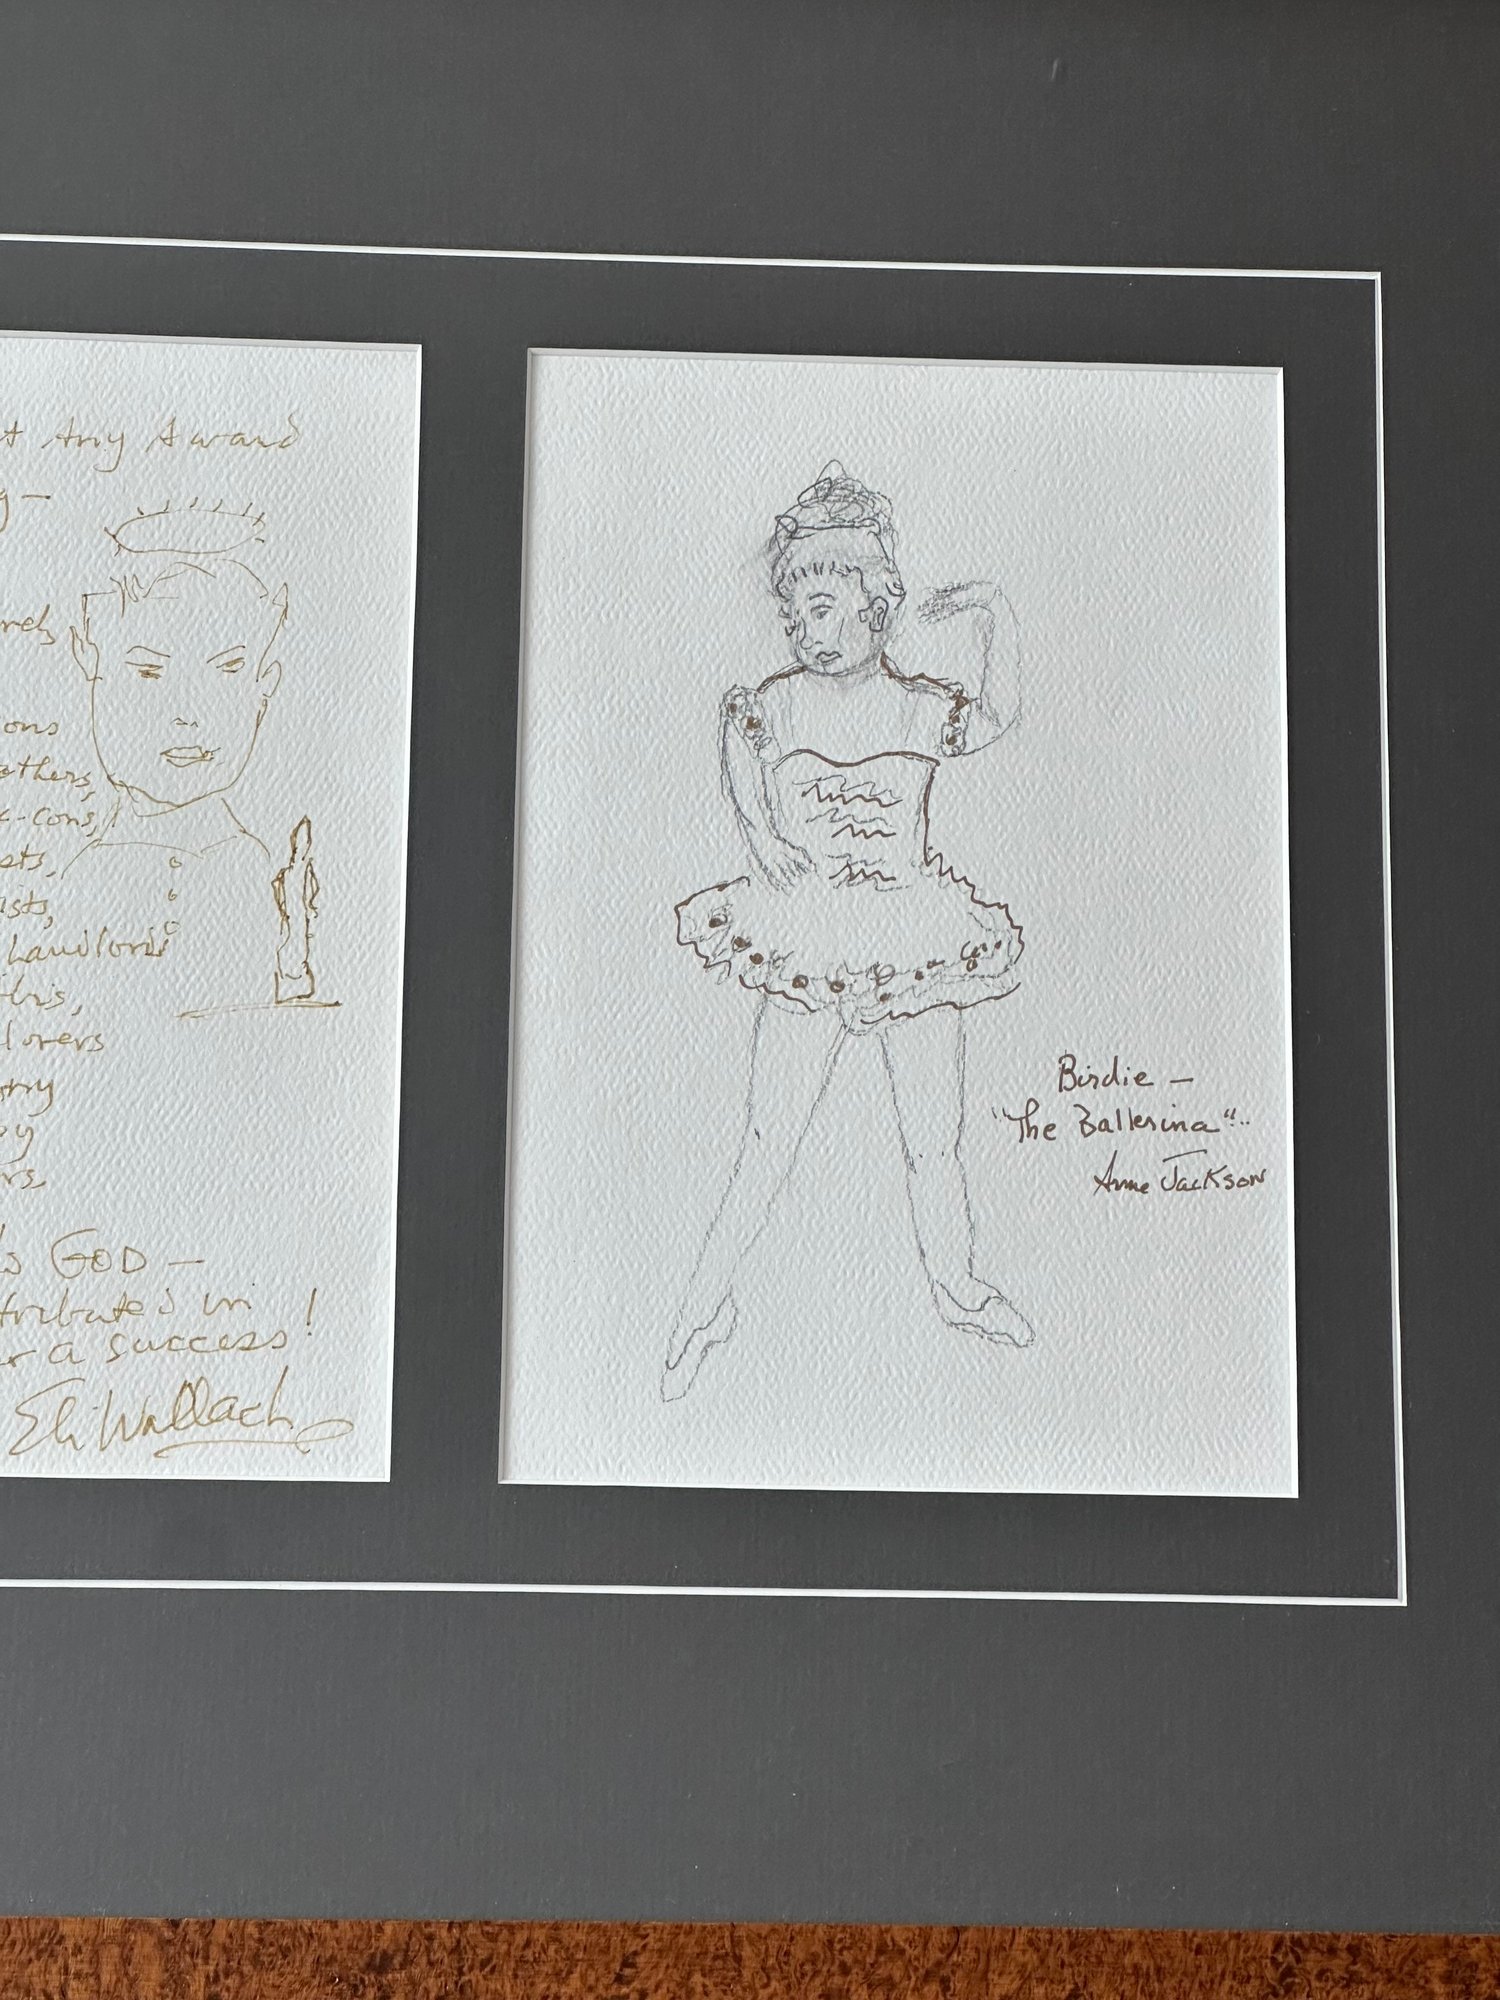 Any Award
ons
athers,
-cons,
ists,
Landlords
this,
lorers
GOD —
tributed in
a success!
Eli Wallach
Birdie —
"The Ballerina"..
Anne Jackson